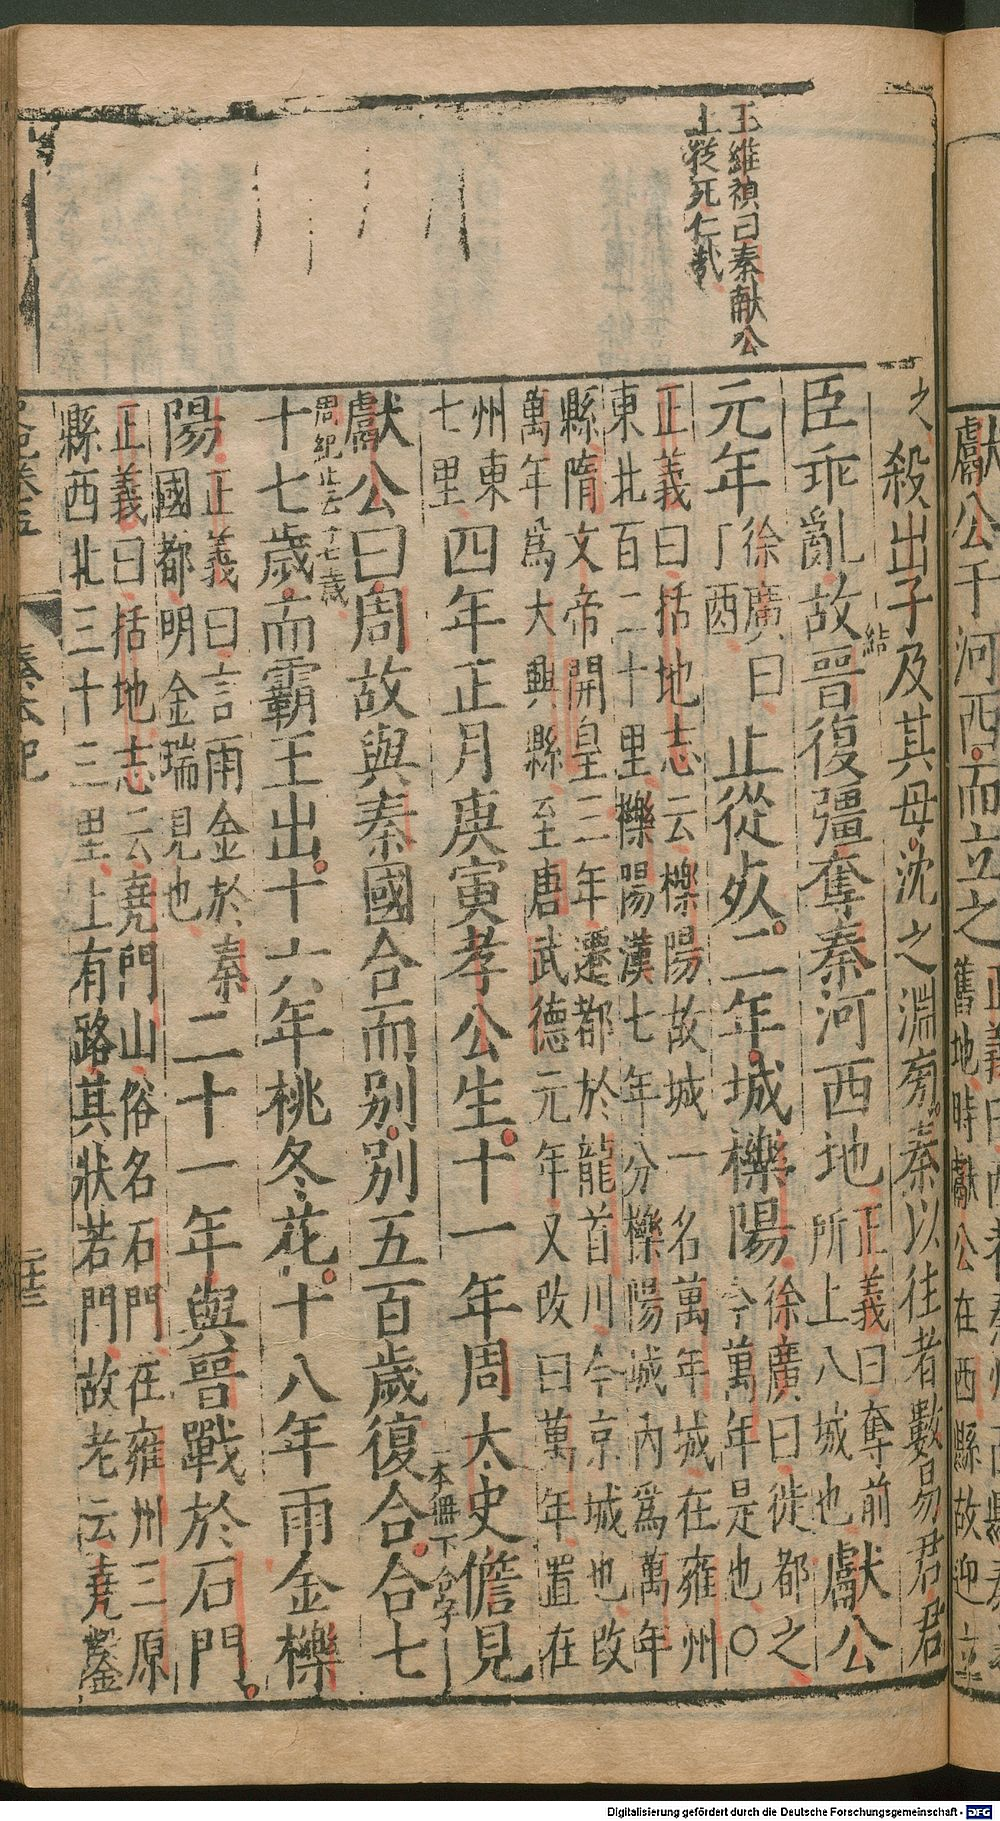 王維禎曰秦獻公
止從死仁哉
獻公于河西而立之
舊地時獻公在西縣故迎立
之殺出子及其母沈之淵旁秦以往者數易君君
結
臣乖亂故晉復彊奪秦河西地
正義曰奪前
所上八城也
獻公
元年
徐廣曰
丁酉
止從死二年城櫟陽
徐廣曰徙都之
今萬年是也○
正義曰括地志云櫟陽故城一名萬年城在雍州
東北百二十里櫟陽漢七年分櫟陽城內爲萬年
縣隋文帝開皇三年遷都於龍首川今京城也改
萬年爲大興縣至唐武德元年又改曰萬年置在
州東
七里
四年正月庚寅孝公生十一年周太史儋見
一本無下合字
獻公曰周故與秦國合而别别五百歲復合合七
周紀止云十七歲
十七歲而霸王出十六年桃冬花十八年雨金櫟
陽
正義曰言雨金於秦
國都明金瑞見也
二十一年與晉戰於石門
正義曰括地志云堯門山俗名石門在雍州三原
縣西北三十三里上有路其狀若門故老云堯鑿
史記卷五 秦本紀
Digitalisierung gefördert durch die Deutsche Forschungsgemeinschaft - DFG